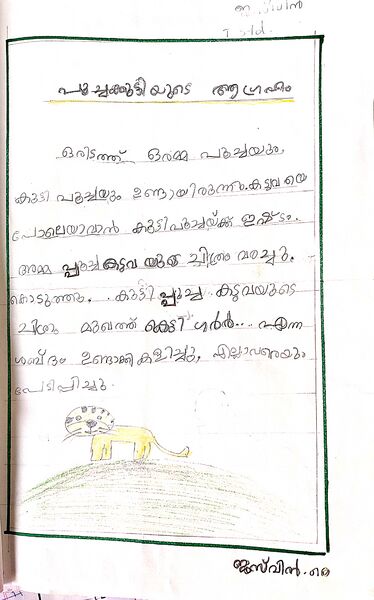 ഇ. ടിവിൻ
I std.
പൂച്ചക്കുട്ടിയുടെ ആഗ്രഹം
ഒരിടത്ത് ഒരമ്മ പൂച്ചയും,
കുട്ടി പൂച്ചയും ഉണ്ടായിരുന്നു. കടുവ യെ
പോലെയാവാൻ കുട്ടിപൂച്ചയ്ക്ക് ഇഷ്ടം.
അമ്മ പൂച്ച കടുവ യുടെ ചിത്രം വരച്ചു.
കൊടുത്തു. കുട്ടി പൂച്ച കടുവയുടെ
ചിത്രം മുഖത്ത് കെട്ടി ഗർർ... എന്ന
ശബ്ദം ഉണ്ടാക്കി കളിച്ചു, എല്ലാവരെയും
പേടിപ്പിച്ചു.
ജസ്‌വിൻ. കെ